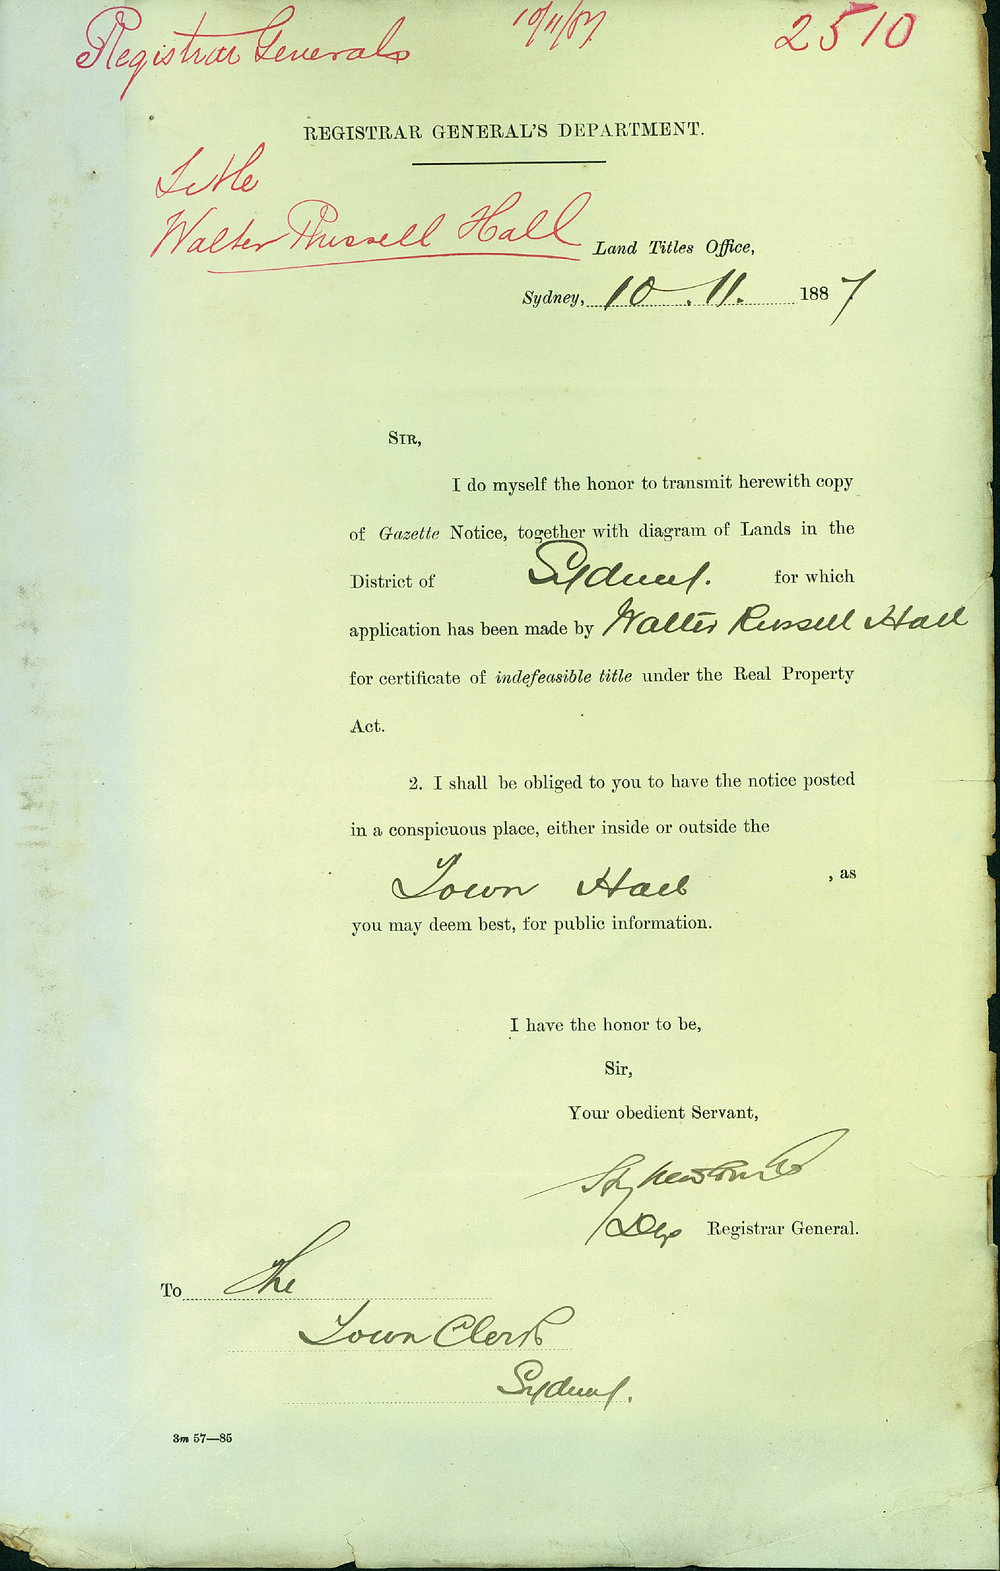 Registrar Generals 10/11/87 2510
REGISTRAR GENERAL'S DEPARTMENT.
Title
Walter Russell Hall
Land Titles Office,
Sydney, 10 . 11. 1887
SIR,
I do myself the honor to transmit herewith copy
of Gazette Notice, together with diagram of Lands in the
District of Sydney. for which
application has been made by Walter Russell Hall
for certificate of indefeasible title under the Real Property
Act.
2. I shall be obliged to you to have the notice posted
in a conspicuous place, either inside or outside the
Town Hall , as
you may deem best, for public information.
I have the honor to be,
Sir,
Your obedient Servant,
Dep Registrar General.
To The
Town Clerk
Sydney.
3m 57—85